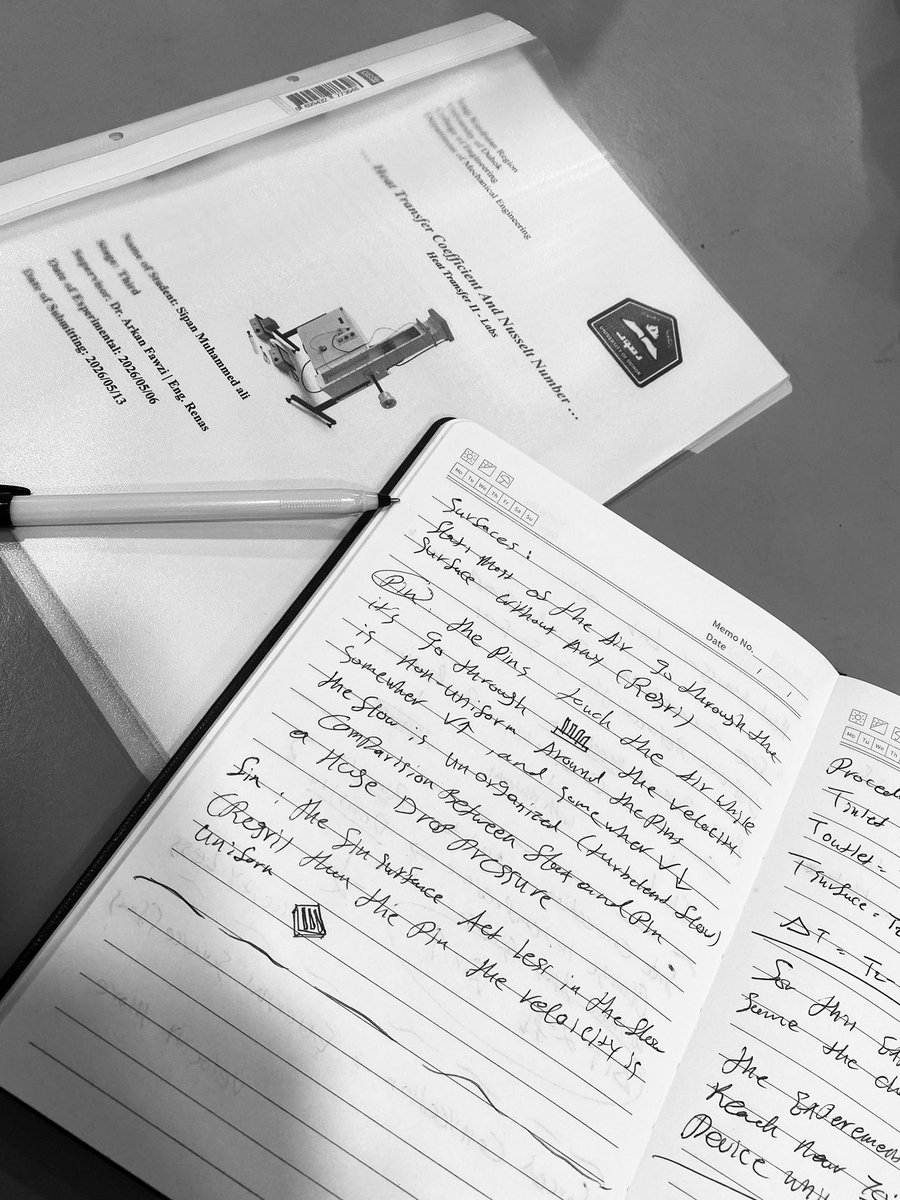 Iraqi Kurdistan Region
University of Duhok
College of Engineering
Department of Mechanical Engineering
Heat Transfer Coefficient And Nusselt Number ...
Heat Transfer II - Labs
UNIVERSITY OF DUHOK
Name of Student: Sipan Muhammed ali
Stage: Third
Supervisor: Dr. Arkan Fawzi | Eng. Renas
Date of Experimental: 2026/05/06
Date of Submitting: 2026/05/13
Mo Tu We Th Fr Sa Su
Memo No.
Date / /
Surfaces:
Slat: Most of the Air go through the
surface without Any (Regril)
Pin: the Pins touch the Air while
it's go through the velocity
is non uniform Around the Pins
Somewher V↑, and somewher V↓
the flow is unorganized (turbulent flow)
Comparision Between Slat and Pin
a HUGE DROP PRESSURE
Fin: the fin surface Act less in the flow
(Regril) than the Pin the velocity is
Uniform
Mo Tu We
Tinlet
Toutlet =
Tsurface = T
ΔT = T
for that
same the
the
Reach near
Device